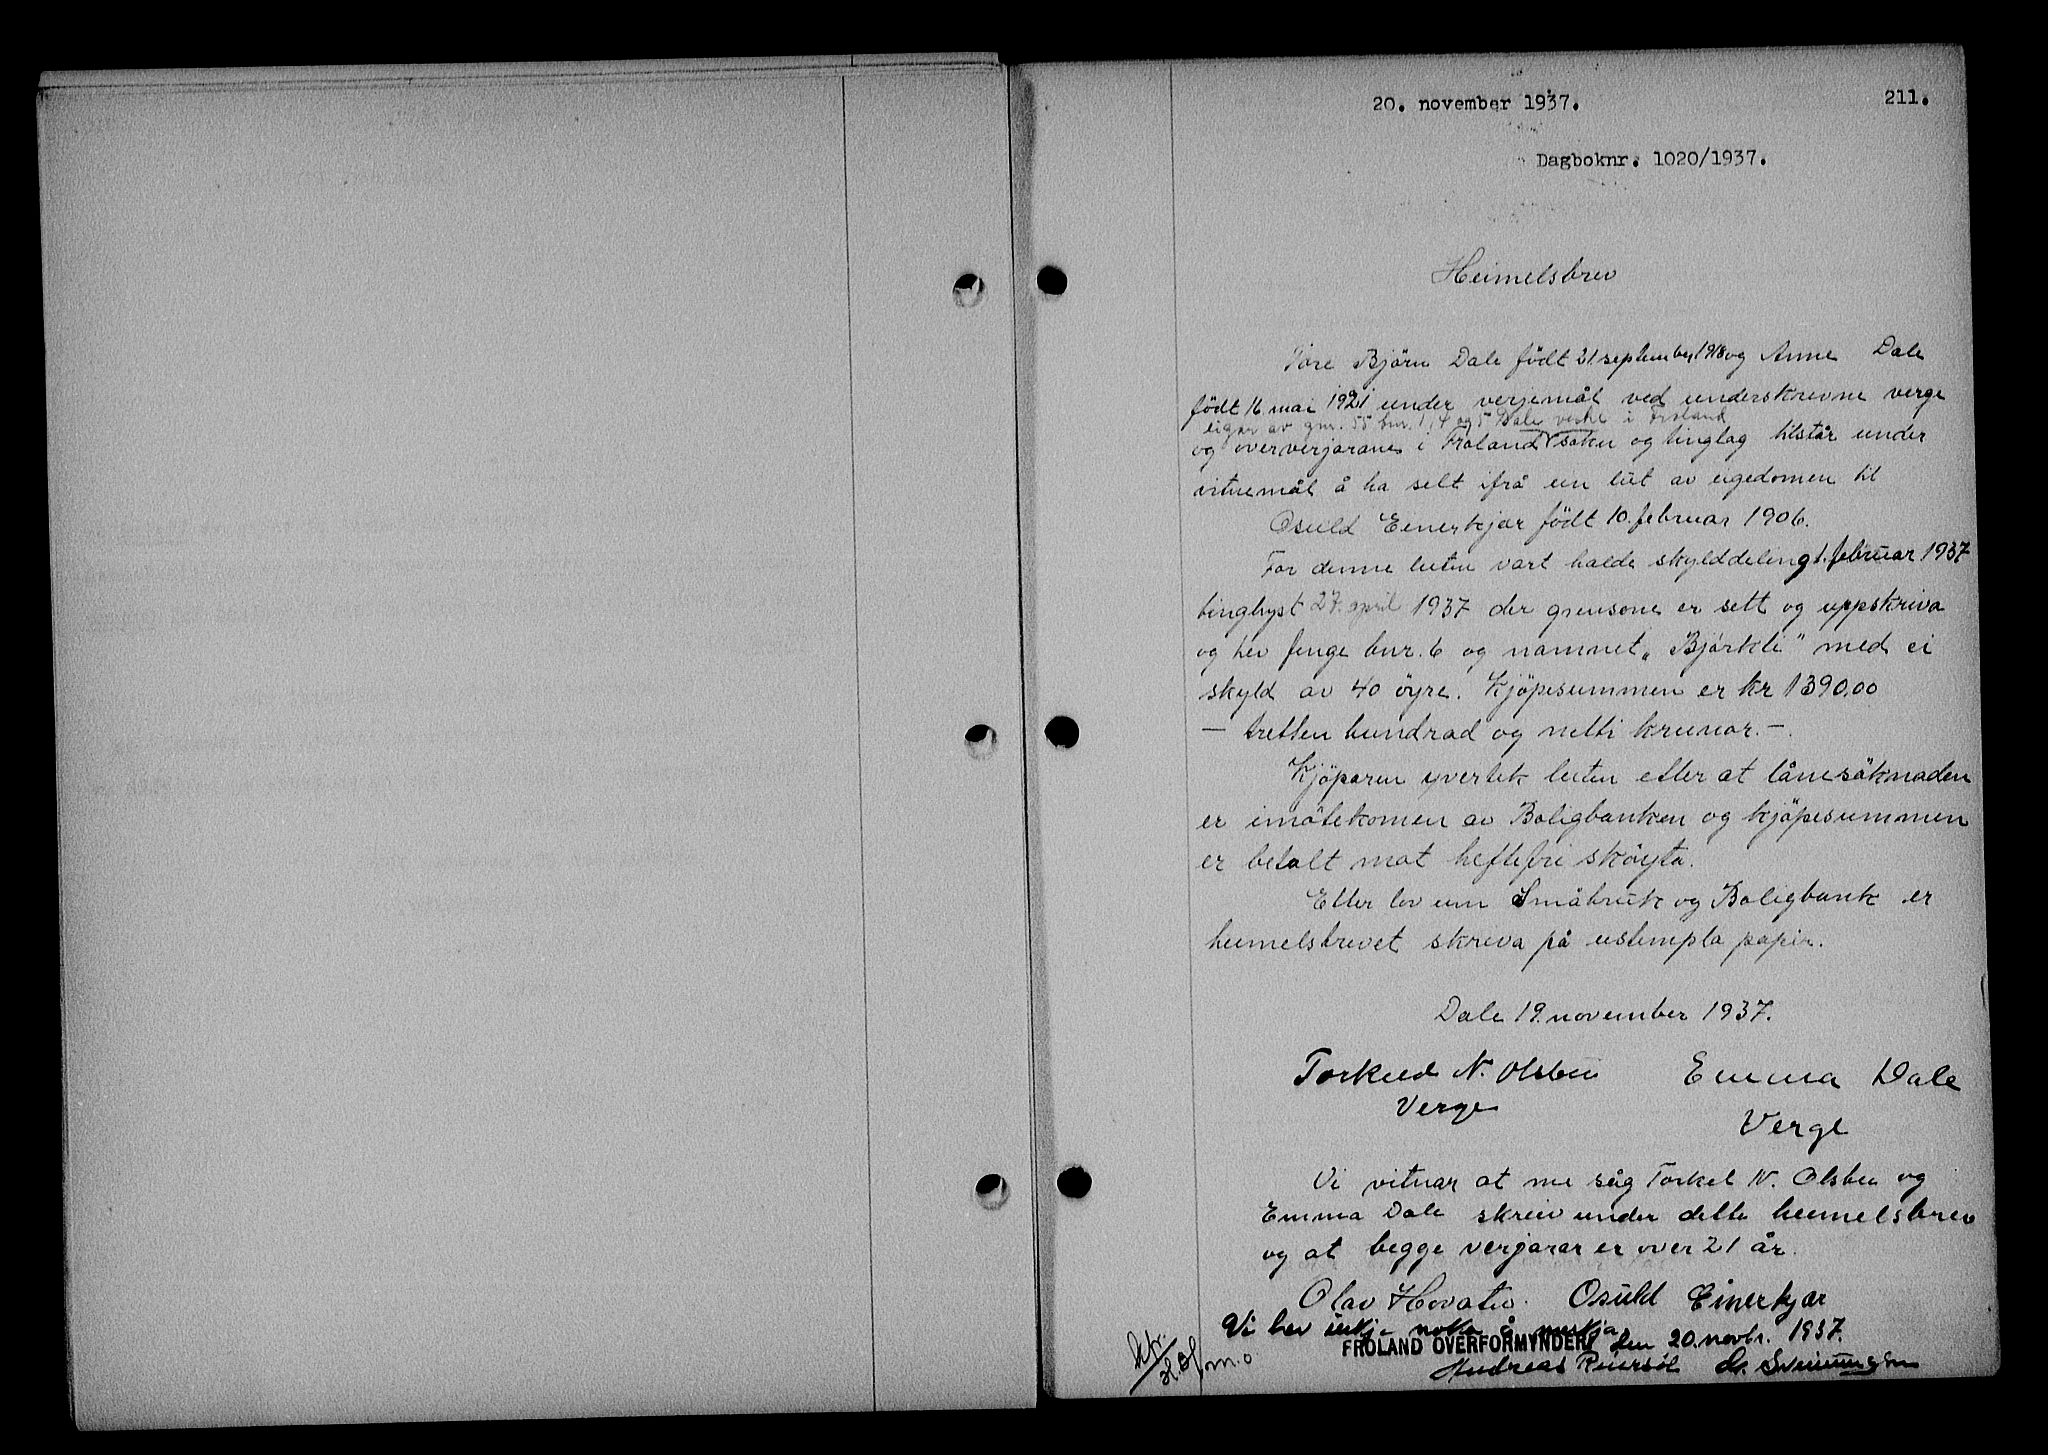 20. november 1937.
211.
Dagboknr. 1020/1937.
Heimelsbrev
Tore Björn Dale födt 21 september 1918 og Anne Dale
födt 16 mai 1921 under verjemål ved underskrevne verge
eigar av gnr. 55 bnr. 1, 4 og 5 Dale i Froland
og oververjarane i Froland sokn og tinglag tilstår under
vitnemål å ha selt ifrå ein lut av eigedomen til
Osuld Einerkjær födt 10. februar 1906.
For denne luten vart halde skylddeling 1. februar 1937
tinglyst 27. april 1937 der grensone er sett og uppskriva
og hev fenge bnr. 6 og namnet "Björkli" med ei
skyld av 40 öyre. Kjöpesummen er kr 1390,00
- tretten hundrad og nitti krunor. -
Kjöparen yvertek luten etter at lånesöknaden
er imötekomen av Boligbanken og kjöpesummen
er betalt mot heftefri sköyta.
Etter lov um Småbruk og Boligbank er
heimelsbrevet skreva på ustempla papir.
Dale 19. november 1937.
Torkeld N. Olsbu Emma Dale
Verge
Verge
Vi vitnar at me såg Torkel N. Olsbu og
Emma Dale skreiv under dette heimelsbrev
og at begge verjarar er over 21 år.
Olav Hovatn. Osuld Einerkjær
Vi hev inkje noko å merkja
FROLAND OVERFORMYNDERI den 20. novbr. 1937.
Andreas Reiersöl Sveinungsen